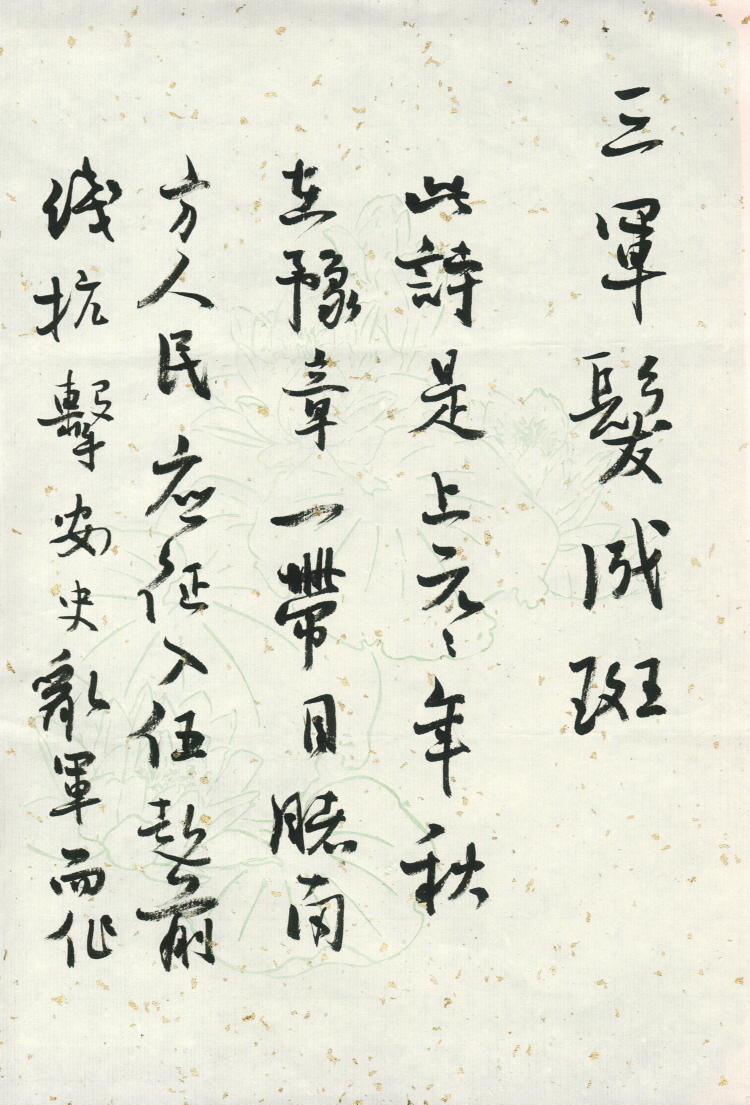 三軍髮成斑
此詩是上元元年秋
在豫章一帶目睹南
方人民应征入伍赴前
线抗擊安史亂軍而作